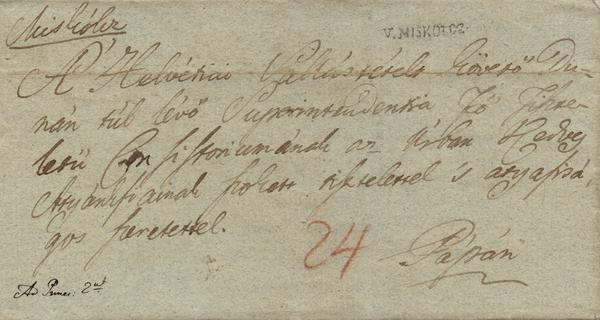 Miskólcz
V. MISKOLCZ
A' Helvétziai Vallástételt követő Du-
nán túl lévő Superintendentia Fő Tisztele-
letű Consistoriumának az Úrban Kedves
Atyánkfiainak szokott tisztelettel 's atyafisá-
gos szeretettel.
24
Pápán